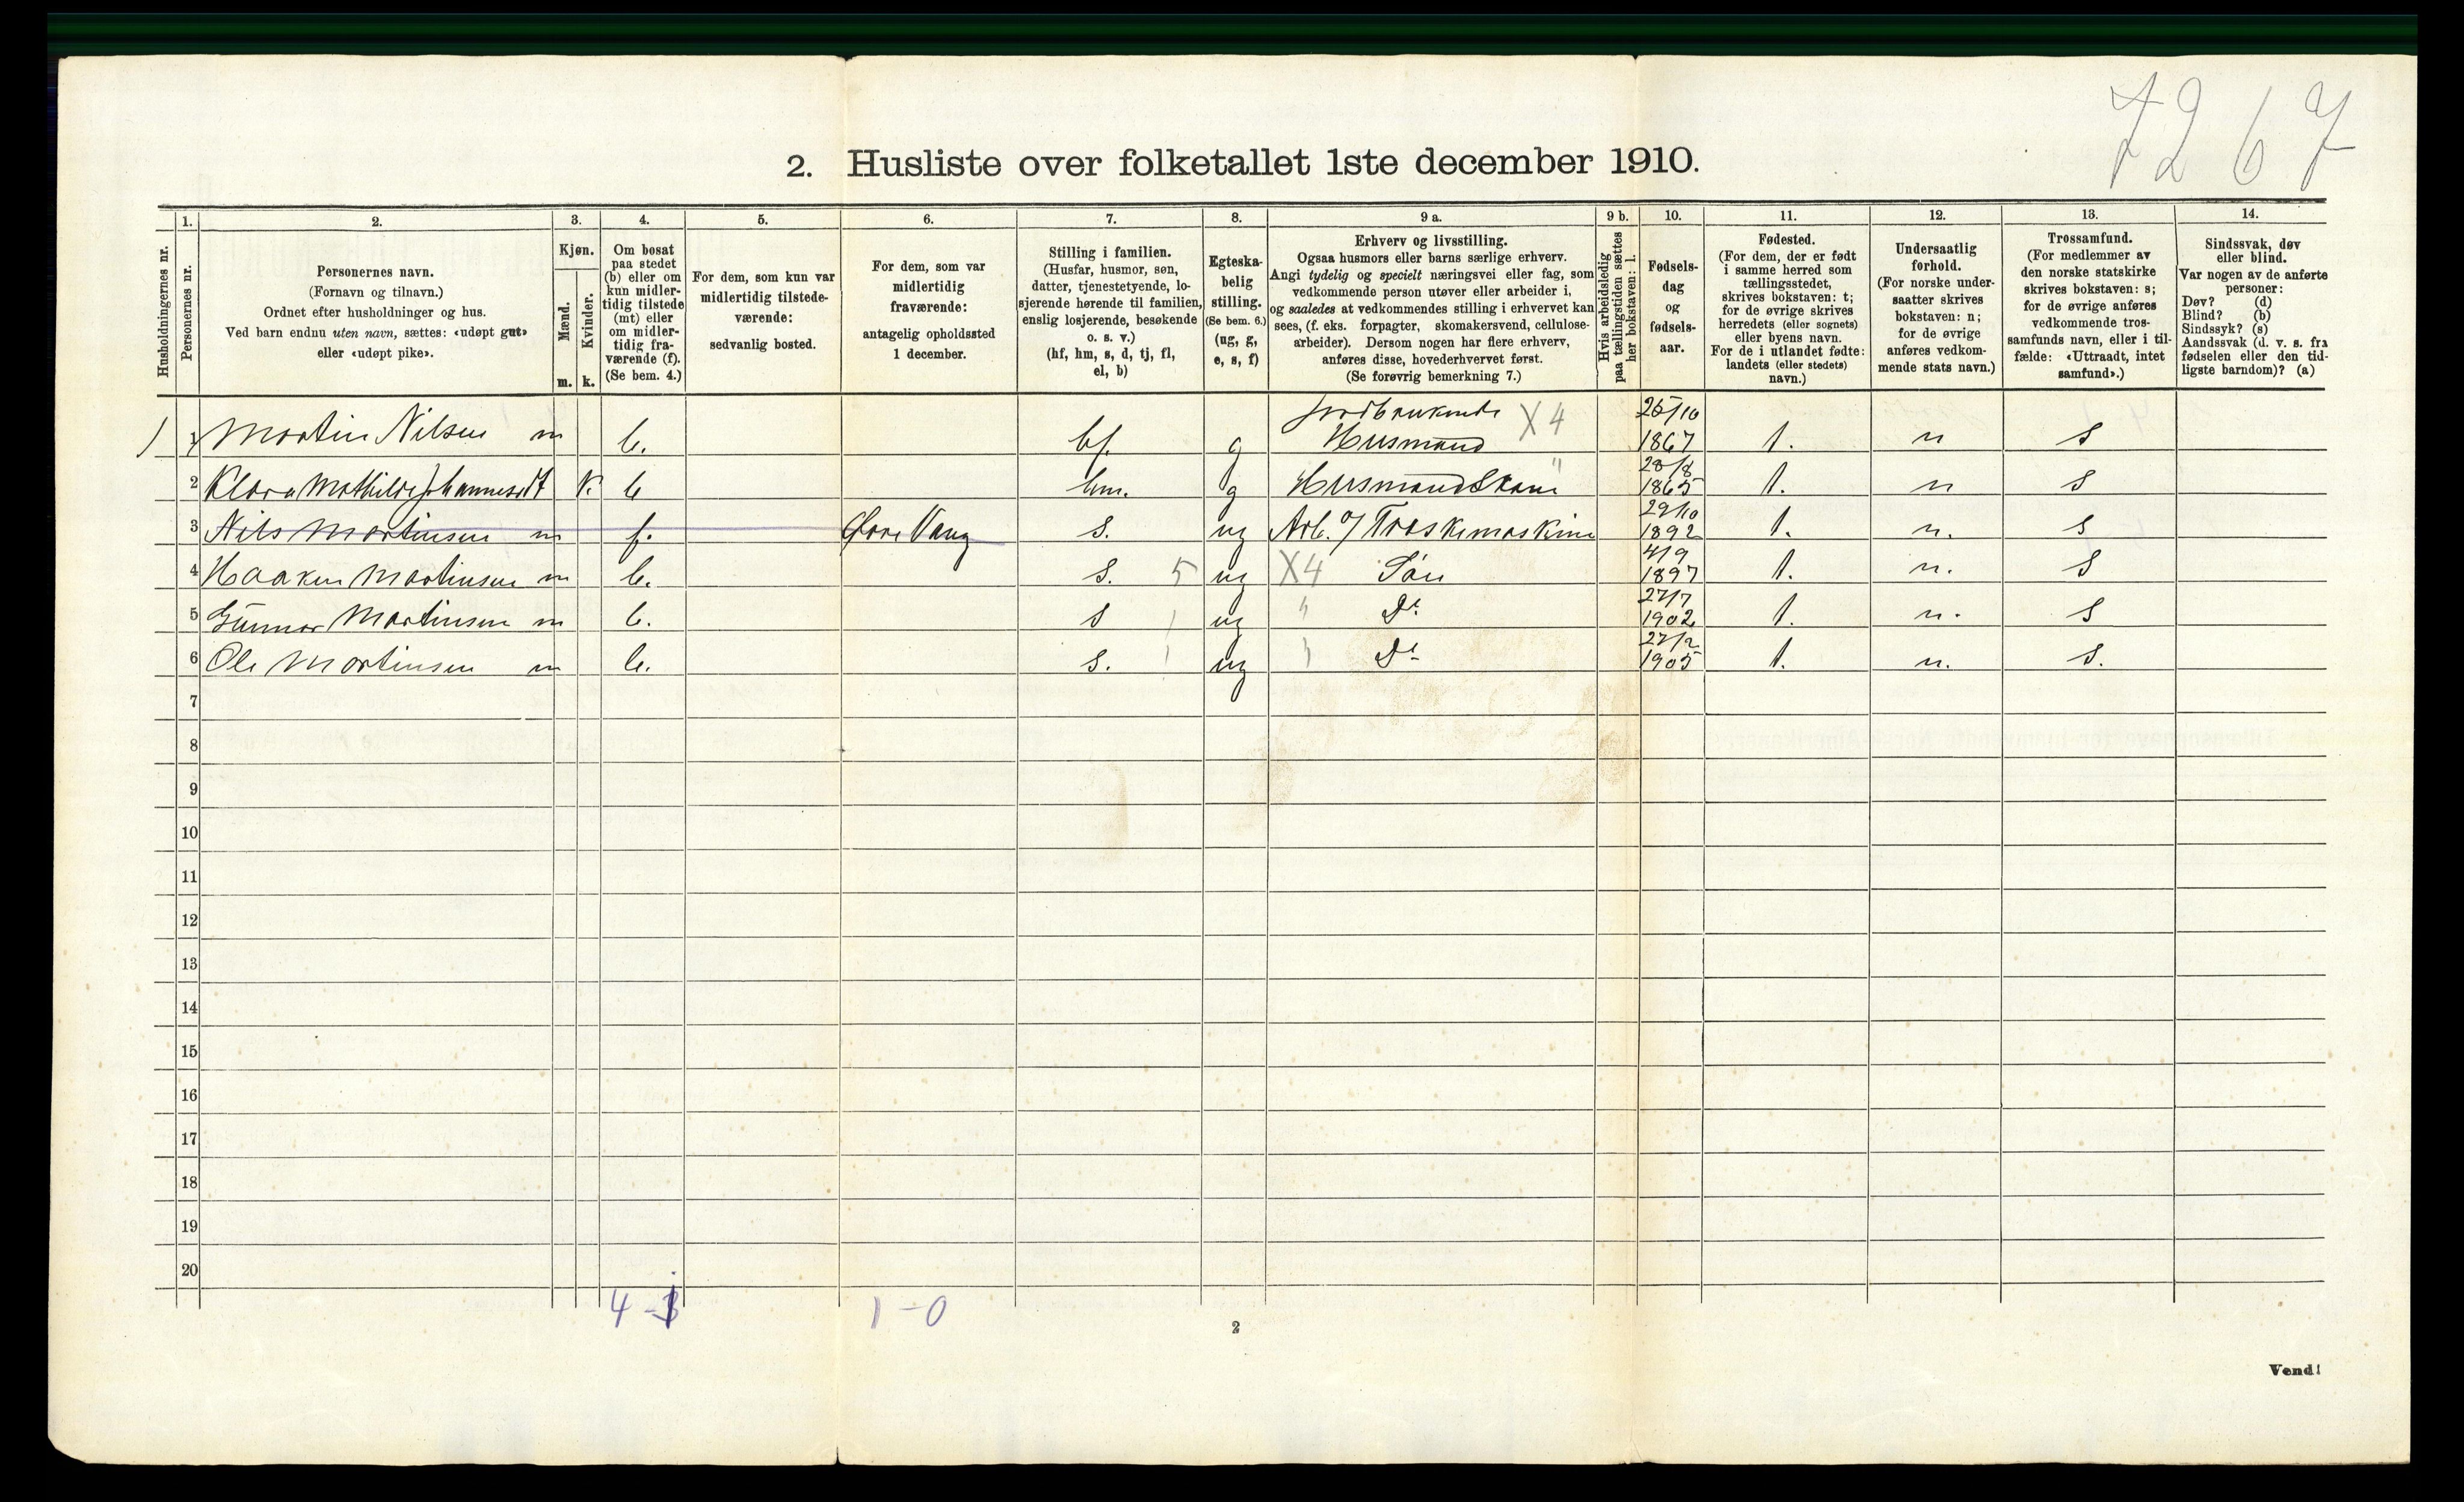 7267
2. Husliste over folketallet 1ste december 1910.
1. 2. 3. 4. 5. 6. 7. 8. 9 a. 9 b. 10. 11. 12. 13. 14.
Husholdningernes nr.
Personernes nr.
Personernes navn.
(Fornavn og tilnavn.)
Ordnet efter husholdninger og hus.
Ved barn endnu uten navn, sættes: «udøpt gut»
eller «udøpt pike».
Kjøn.
Mænd.
m.
Kvinder.
k.
Om bosat
paa stedet
(b) eller om
kun midler-
tidig tilstede
(mt) eller
om midler-
tidig fra-
værende (f).
(Se bem. 4.)
For dem, som kun var
midlertidig tilstede-
værende:
sedvanlig bosted.
For dem, som var
midlertidig
fraværende:
antagelig opholdssted
1 december.
Stilling i familien.
(Husfar, husmor, søn,
datter, tjenestetyende, lo-
sjerende hørende til familien,
enslig losjerende, besøkende
o. s. v.)
(hf, hm, s, d, tj, fl,
el, b)
Egteska-
belig
stilling.
(Se bem. 6.)
(ug, g,
e, s, f)
Erhverv og livsstilling.
Ogsaa husmors eller barns særlige erhverv.
Angi tydelig og specielt næringsvei eller fag, som
vedkommende person utøver eller arbeider i,
og saaledes at vedkommendes stilling i erhvervet kan
sees, (f. eks. forpagter, skomakersvend, cellulose-
arbeider). Dersom nogen har flere erhverv,
anføres disse, hovederhvervet først.
(Se forøvrig bemerkning 7.)
Hvis arbeidsledig
paa tællingstiden sættes
her bokstaven: l.
Fødsels-
dag
og
fødsels-
aar.
Fødested.
(For dem, der er født
i samme herred som
tællingsstedet,
skrives bokstaven: t;
for de øvrige skrives
herredets (eller sognets)
eller byens navn.
For de i utlandet fødte:
landets (eller stedets)
navn.)
Undersaatlig
forhold.
(For norske under-
saatter skrives
bokstaven: n;
for de øvrige
anføres vedkom-
mende stats navn.)
Trossamfund.
(For medlemmer av
den norske statskirke
skrives bokstaven: s;
for de øvrige anføres
vedkommende tros-
samfunds navn, eller i til-
fælde: «Uttraadt, intet
samfund».)
Sindssvak, døv
eller blind.
Var nogen av de anførte
personer:
Døv? (d)
Blind? (b)
Sindssyk? (s)
Aandssvak (d. v. s. fra
fødselen eller den tid-
ligste barndom)? (a)
Jordbrukende X4 25/10
1 1 Martin Nilsen m b. hf. g Husmand 1867 t. n s
28/8
2 Klara Mathilde Johannesdt k. b hm. g Husmandskone " 1865 t. n s
29/10
3 Nils Martinsen m f. Øvre Vang s. ug Arb. v/ Træskemaskine 1892 t. n. s
4/9
4 Haakon Martinsen m b. s. 5 ug X4 Søn 1897 t. n. s
27/7
5 Gunnar Martinsen m b. s 1 ug " Do 1902 t. n. s
27/2
6 Ole Martinsen m b. s. 1 ug " Do 1905 t. n. s.
7
8
9
10
11
12
13
14
15
16
17
18
19
20
4 - 1 1 - 0
2
Vend!